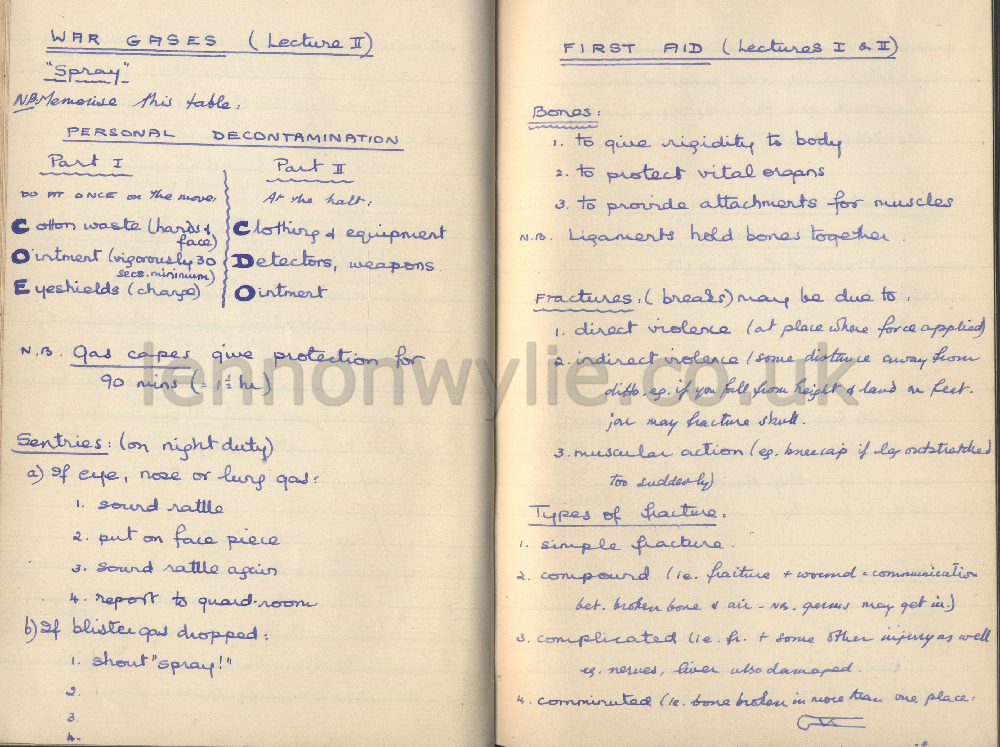 WAR GASES (Lecture II)
"Spray"
N.B. Memorise this table:
PERSONAL DECONTAMINATION
Part I
DO AT ONCE on the move:
Cotton waste (hands & face)
Ointment (vigorously 30 secs. minimum)
Eyeshields (change)
Part II
At the halt:
Clothing & equipment
Detectors, weapons
Ointment
N.B. Gas capes give protection for
90 mins (= 1½ hr)
Sentries: (on night duty)
a) If eye, nose or lung gas:
1. sound rattle
2. put on face piece
3. sound rattle again
4. report to guard-room
b) If blister gas dropped:
1. shout "spray!"
2.
3.
4.
FIRST AID (Lectures I & II)
Bones:
1. to give rigidity to body
2. to protect vital organs
3. to provide attachments for muscles
N.B. Ligaments hold bones together.
Fractures: (breaks) may be due to:
1. direct violence (at place where force applied)
2. indirect violence (some distance away from
ditto. eg. if you fall from height & land on feet.
jar may fracture skull.
3. muscular action (eg. kneecap if leg outstretched
too suddenly)
Types of fracture:
1. simple fracture.
2. compound (ie. fracture + wound = communication
bet. broken bone & air - N.B. germs may get in.)
3. complicated (ie. fr. + some other injury as well
eg. nerves, liver also damaged.
4. comminuted (ie. bone broken in more than one place.
lennonwylie.co.uk